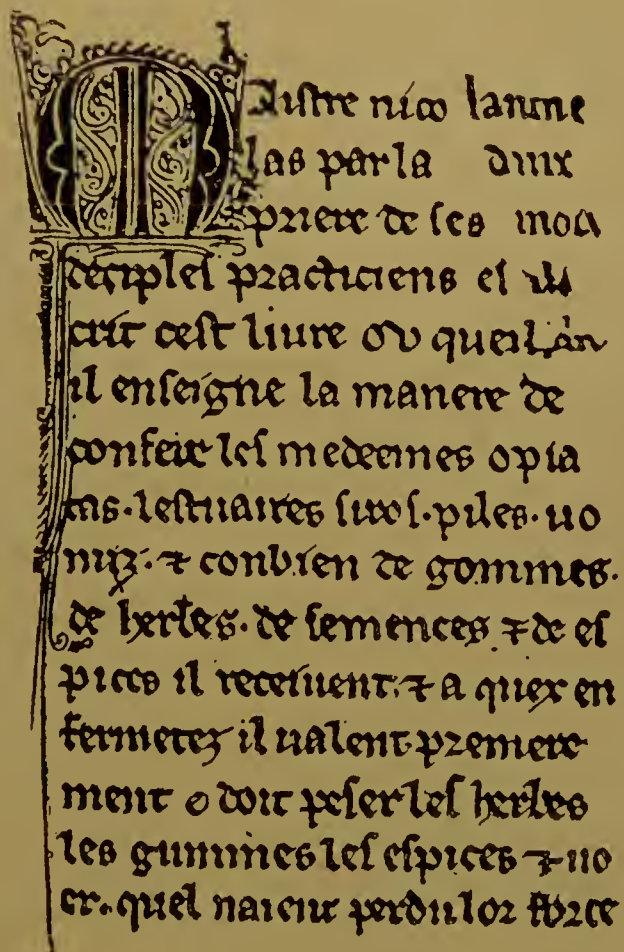 Maistre nico
las par la
priere de ses
deciples practiciens es
crit cest liure ou queil
il enseigne la manere de
confeir les medecines opia
tas. lestuaires siros. piles. uo
miz. ⁊ conbien de gommes.
de herbes. de semences ⁊ de es
pices il receiuent. ⁊ a quex en
fermetez il ualent premiere
ment o doit peser les herbes
les gummes les espices ⁊ uo
er. quel naient perdu lor force